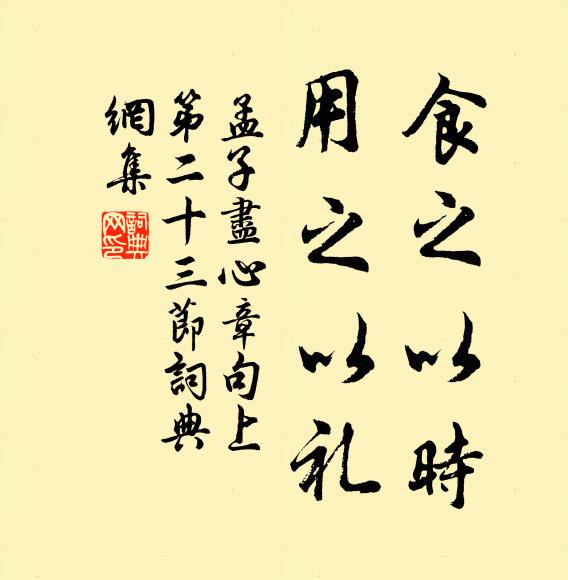 食之以時
用之以礼
孟子盡心章句上
第二十三節詞典
網集
詞典
网印